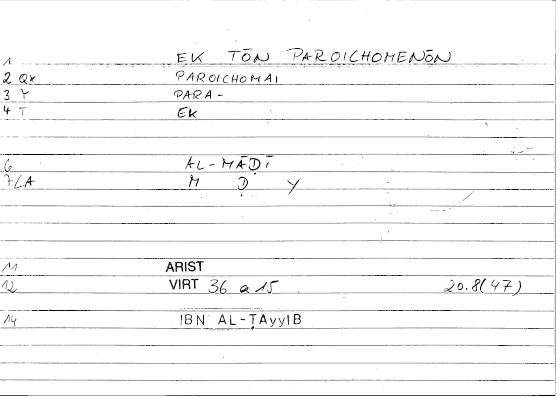 1 EK TŌN PAROICHOMENŌN
2 Qx PAROICHOMAI
3 Y PARA-
4 T EK
6 AL-MĀḌĪ
7 LA M Ḍ Y
11 ARIST
12 VIRT 36 a 15 20.8(47)
14 IBN AL-ṬAyyIB